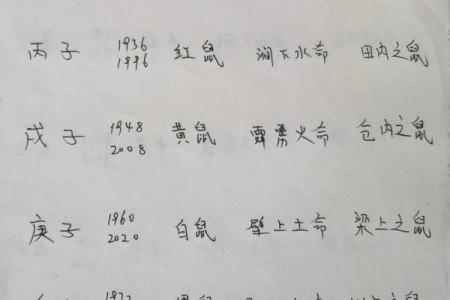 丙子 1936 1996 红鼠 涧下水命 田内之鼠
戊子 1948 2008 黄鼠 霹雳火命 仓内之鼠
庚子 1960 2020 白鼠 壁上土命 梁上之鼠